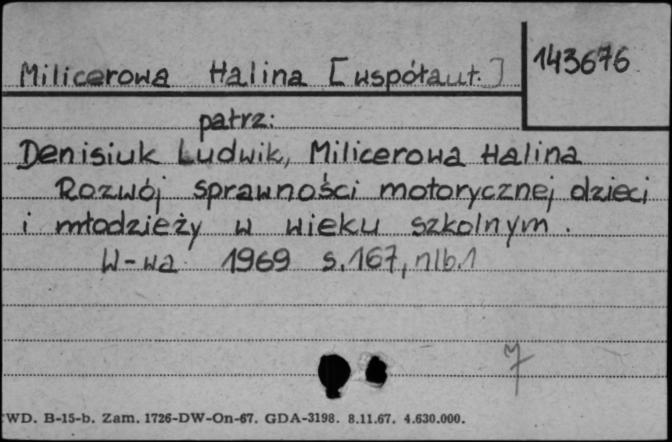 Milicerowa Halina [współaut.]
143676
patrz:
Denisiuk Ludwik, Milicerowa Halina
Rozwój sprawności motorycznej dzieci
i młodzieży w wieku szkolnym.
W-wa 1969 s.167, nlb.1
WD. B-15-b. Zam. 1726-DW-On-67. GDA-3198. 8.11.67. 4.630.000.